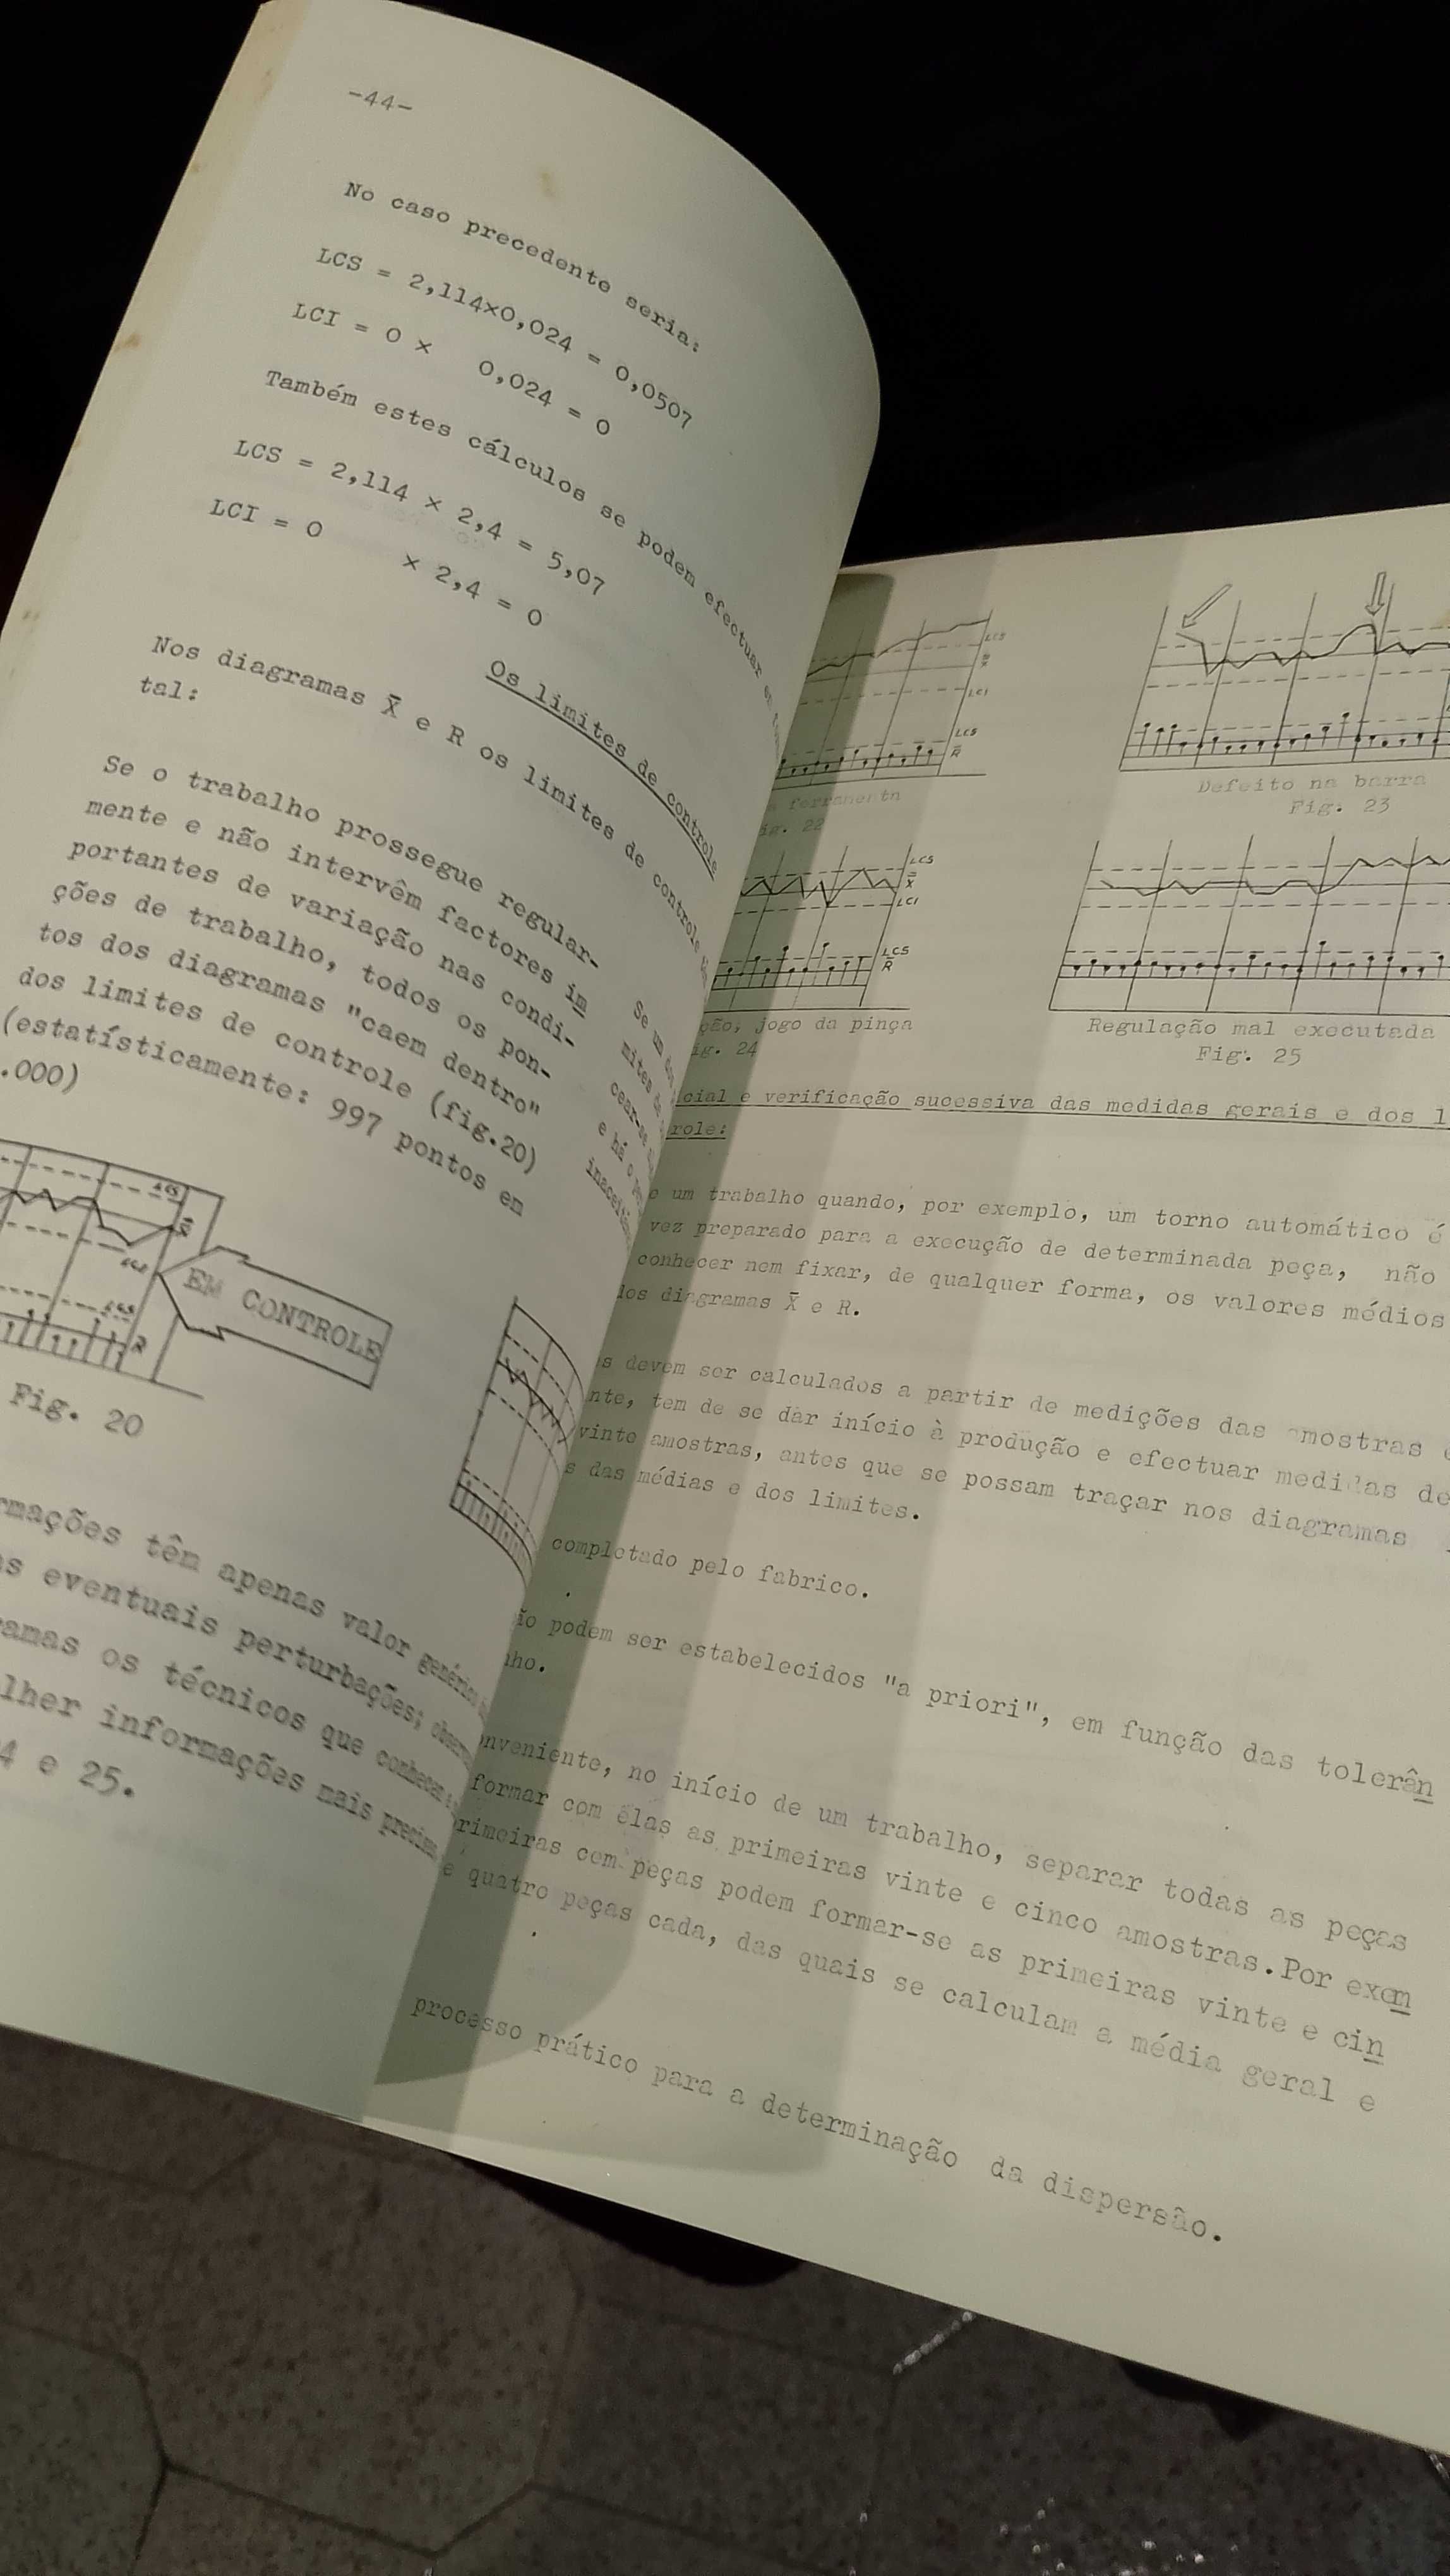 -44-
No caso precedente seria:
LCS = 2,114×0,024 = 0,0507
LCI = 0 × 0,024 = 0
Também estes cálculos se podem efectuar em
LCS = 2,114 × 2,4 = 5,07
LCI = 0 × 2,4 = 0
Os limites de controle
Nos diagramas X̄ e R os limites de controle
tal:
Se o trabalho prossegue regular-
mente e não intervêm factores im
portantes de variação nas condi-
ções de trabalho, todos os pon-
tos dos diagramas "caem dentro"
dos limites de controle (fig.20)
(estatísticamente: 997 pontos em
.000)
Se um dos
mites de
cear-se
e há o
LCS
X̄
LCI
LCS
R̄
EM CONTROLE
Fig. 20
rmações têm apenas valor genérico
s eventuais perturbações;
amas os técnicos que conhecem
lher informações mais precisas
4 e 25.
LCS
X̄
LCI
LCS
R̄
ferramenta
ig. 22
Defeito na barra
Fig. 23
LCS
X̄
LCI
LCS
R̄
ção, jogo da pinça
ig. 24
Regulação mal executada
Fig. 25
cial e verificação sucessiva das medidas gerais e dos l
role:
o um trabalho quando, por exemplo, um torno automático é
vez preparado para a execução de determinada peça, não
conhecer nem fixar, de qualquer forma, os valores médios
dos diagramas X̄ e R.
s devem ser calculados a partir de medições das amostras
nte, tem de se dar início à produção e efectuar medidas de
vinte amostras, antes que se possam traçar nos diagramas
s das médias e dos limites.
completado pelo fabrico.
ão podem ser estabelecidos "a priori", em função das tolerân
nho.
onveniente, no início de um trabalho, separar todas as peças
formar com elas as primeiras vinte e cinco amostras.Por exem
rimeiras cem peças podem formar-se as primeiras vinte e cin
e quatro peças cada, das quais se calculam a média geral e
processo prático para a determinação da dispersão.